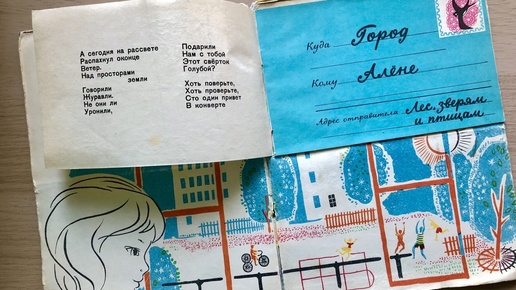 А сегодня на рассвете
Распахнул оконце
Ветер.
Над просторами
земли
Говорили
Журавли.
Не они ли
Уронили,
Подарили
Нам с тобой
Этот свёрток
Голубой?
Хоть поверьте,
Хоть проверьте,
Сто один привет
В конверте
Куда Город
Кому Алёне
Адрес отправителя Лес, зверям
и птицам